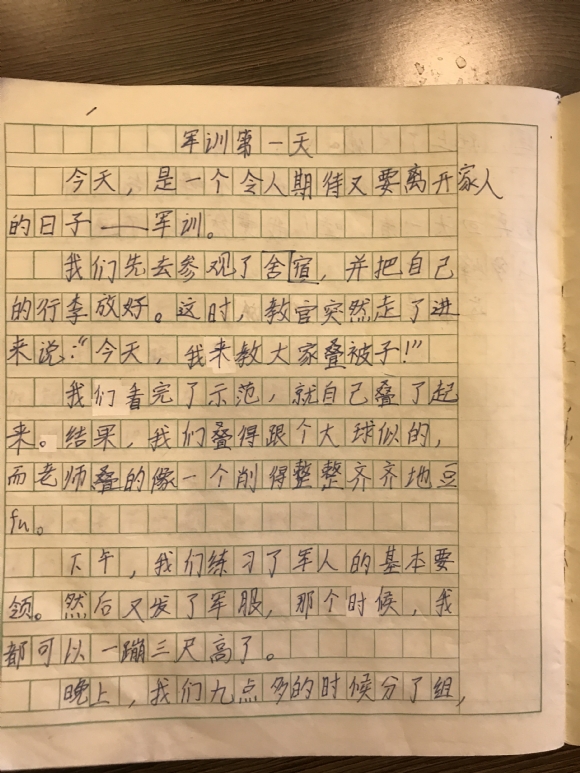 军训第一天
今天，是一个令人期待又要离开家人
的日子——军训。
我们先去参观了舍宿，并把自己
的行李放好。这时，教官突然走了进
来说："今天，我来教大家叠被子！"
我们看完了示范，就自己叠了起
来。结果，我们叠得跟个大球似的，
而老师叠的像一个削得整整齐齐地豆
fu。
下午，我们练习了军人的基本要
领。然后又发了军服，那个时候，我
都可以一蹦三尺高了。
晚上，我们九点多的时候分了组，